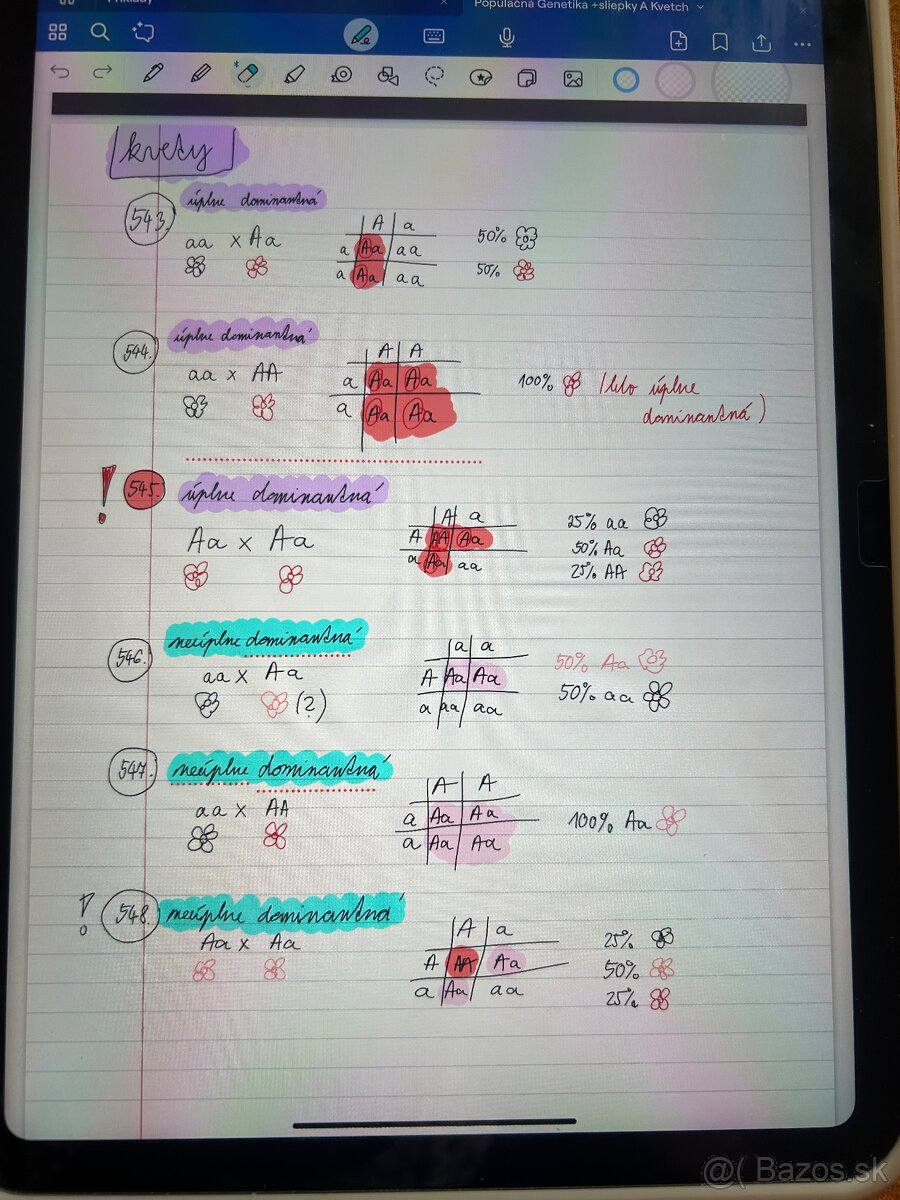 Príklady
Populačná Genetika +sliepky A Kvetch
kvety
543. úplne dominantná
aa x Aa
A a
a Aa aa
a Aa aa
50%
50%
544. úplne dominantná
aa x AA
A A
a Aa Aa
a Aa Aa
100% (lebo úplne
dominantná)
! 545. úplne dominantná
Aa x Aa
A a
A AA Aa
a Aa aa
25% aa
50% Aa
25% AA
546. neúplne dominantná
aa x Aa
(?)
a a
A Aa Aa
a aa aa
50% Aa
50% aa
547. neúplne dominantná
aa x AA
A A
a Aa Aa
a Aa Aa
100% Aa
! 548. neúplne dominantná
Aa x Aa
A a
A AA Aa
a Aa aa
25%
50%
25%
@( Bazos.sk